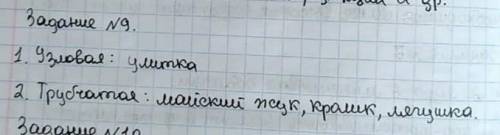 Задание №9.
1. Узловая: улитка
2. Трубчатая: майский жук, кролик, лягушка.
Задание №10